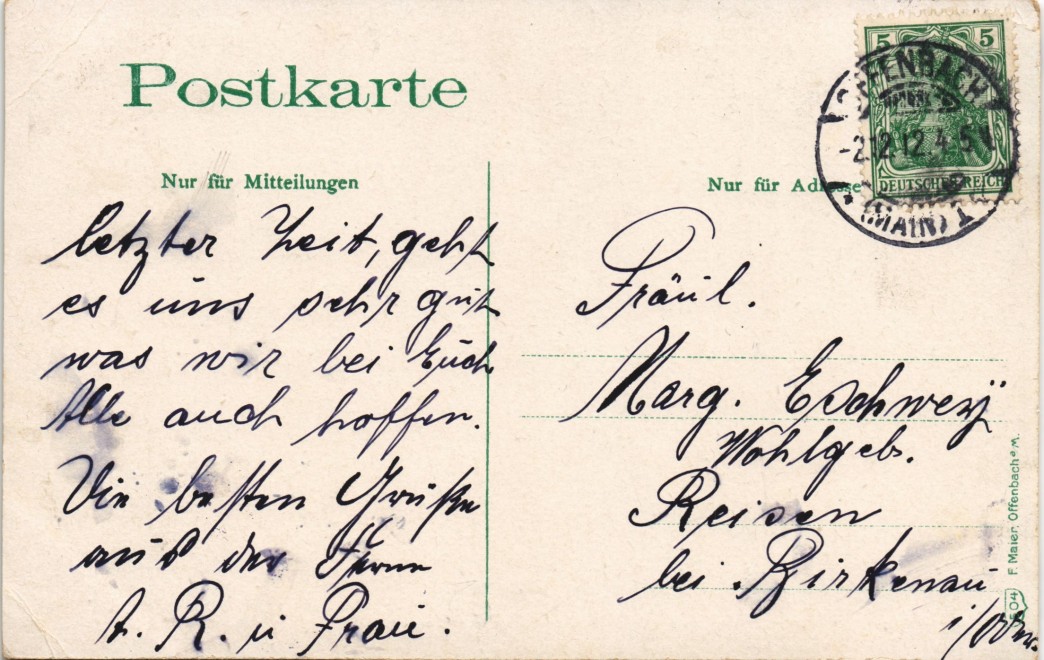 Postkarte
5 5
OFFENBACH
-2.12.12.4-5V
DEUTSCHES REICH
(MAIN) 1
Nur für Mitteilungen
Nur für Adresse
letzter Zeit, geht
es uns sehr gut
was wir bei Euch
Alle auch hoffen.
Die besten Grüße
aus der Ferne
A. R. u Frau.
Fräul.
Marg. Eschwey
Wohlgeb.
Reisen
bei Birkenau
i/Odw.
F. Maier, Offenbach a/M.
504